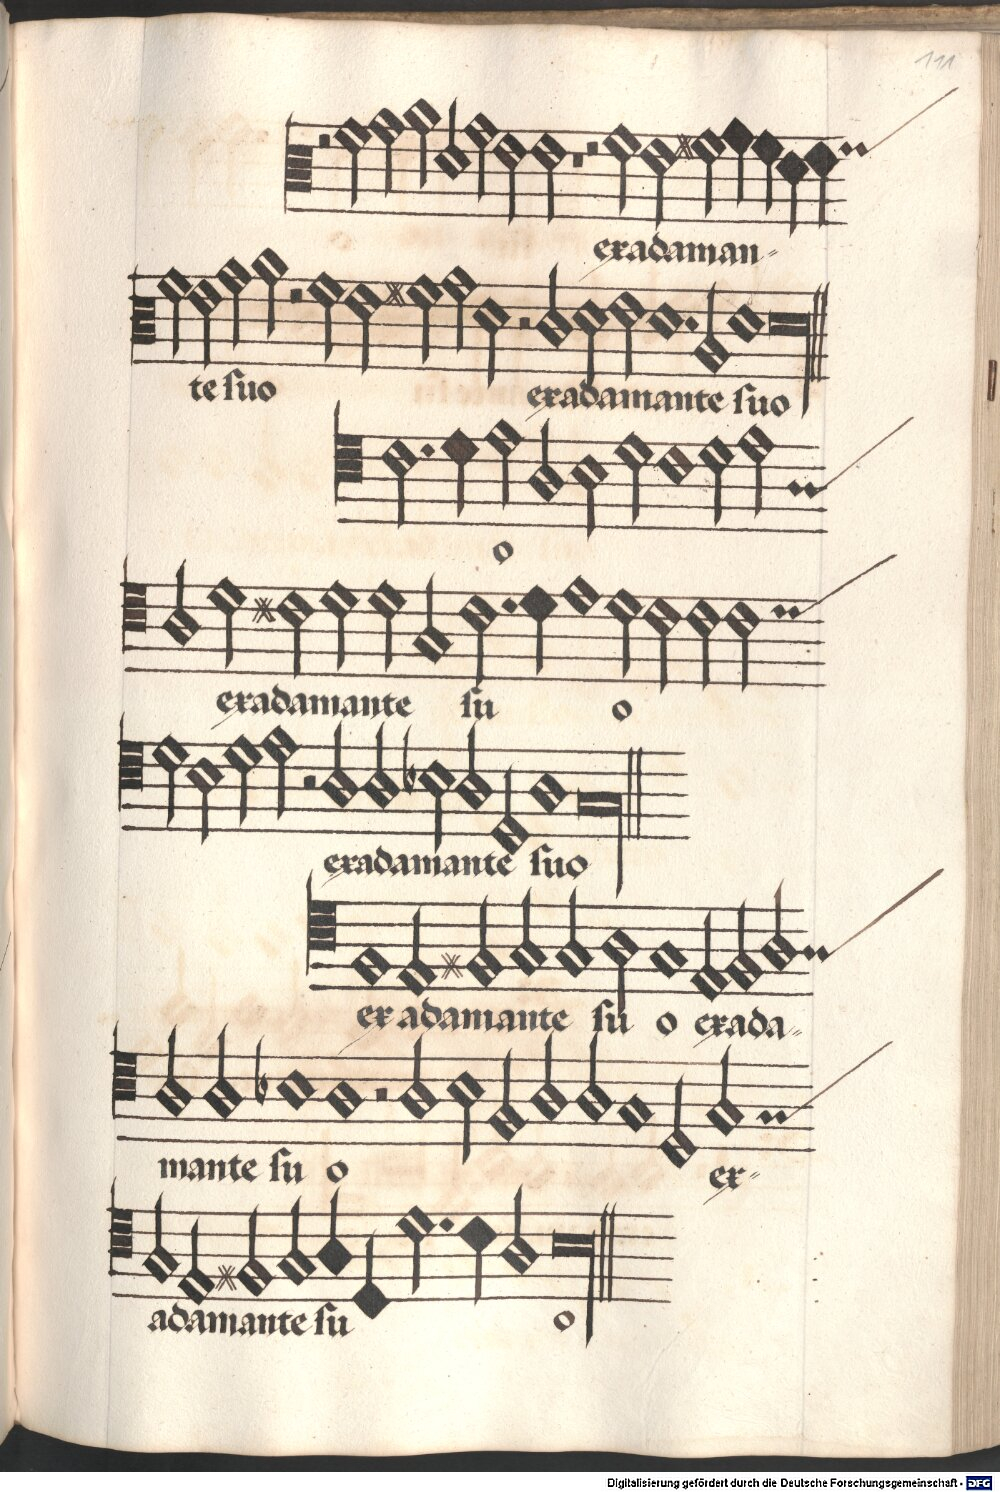 111
exadaman-
te suo exadamante suo
o
exadamante su o
exadamante suo
ex adamante su o exada-
mante su o ex-
adamante su o
Digitalisierung gefördert durch die Deutsche Forschungsgemeinschaft - DFG